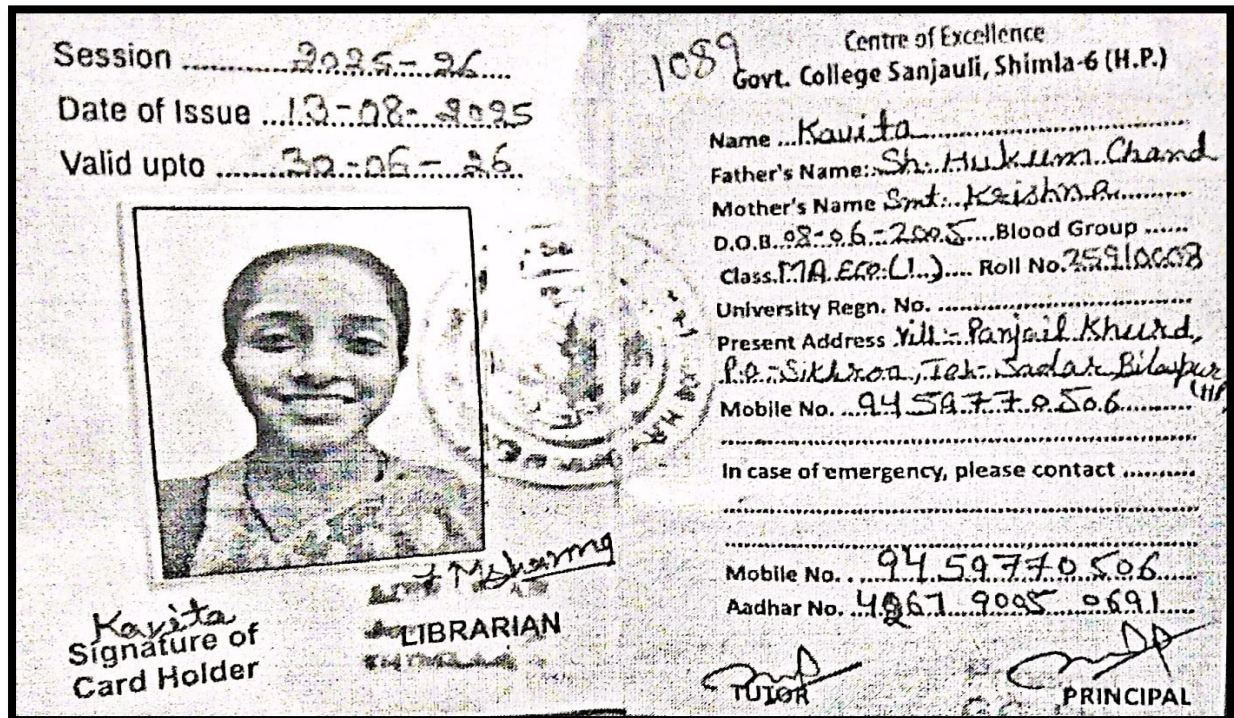 Session ........2025-26....
Date of Issue ...13-08-2025
Valid upto ........30-06-26.
Kavita
Signature of
Card Holder
LIBRARIAN
1089
Centre of Excellence
Govt. College Sanjauli, Shimla-6 (H.P.)
Name ...Kavita...........................
Father's Name: Sh. Hukum Chand
Mother's Name Smt. Krishna..........
D.O.B. 08-06-2005....Blood Group ......
Class. MA Eco. (I..).... Roll No.
University Regn. No. ..............................
Present Address Vill:- Panjail Khurd,
P.O-Sikhron, Teh- Sadar Bilaspur (HP)
Mobile No. ..9459770506..........
In case of emergency, please contact ..........
Mobile No. ..9459770506
Aadhar No. 9005 0691
TUTOR
PRINCIPAL